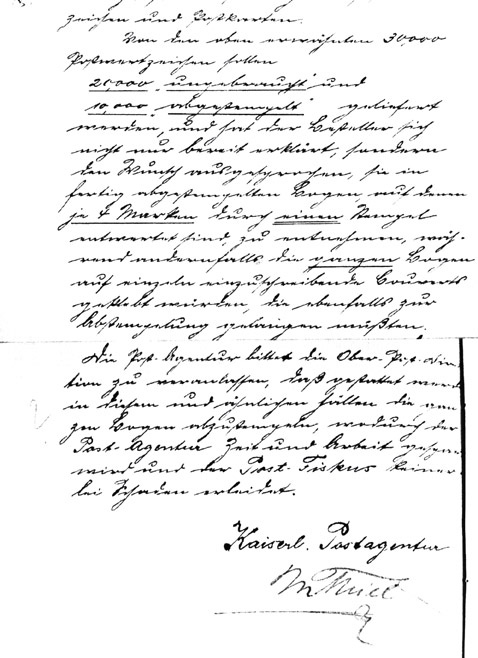 zeichen und Postkarten.
Von den oben erwähnten 30,000
Postwertzeichen sollen
20,000 „ungebraucht" und
10,000 „abgestempelt" geliefert
werden, und hat der Besteller sich
nicht nur bereit erklärt, sondern
den Wunsch ausgesprochen, sie in
fertig abgestempelten Bogen, auf denen
je 4 Marken durch einen Stempel
entwertet sind, zu entnehmen, wäh-
rend andernfalls die ganzen Bogen
auf einzeln einzuschreibende Couverts
geklebt würden, die ebenfalls zur
Abstempelung gelangen müßten.
Die Post-Agentur bittet die Ober-Post-Direk
tion zu veranlassen, daß gestattet werde
in diesem und ähnlichen Fällen die gan
zen Bogen abzustempeln, wodurch der
Post-Agentur Zeit und Arbeit gespart
wird und der Post-Fiskus keiner-
lei Schaden erleidet.
Kaiserl. Postagentur